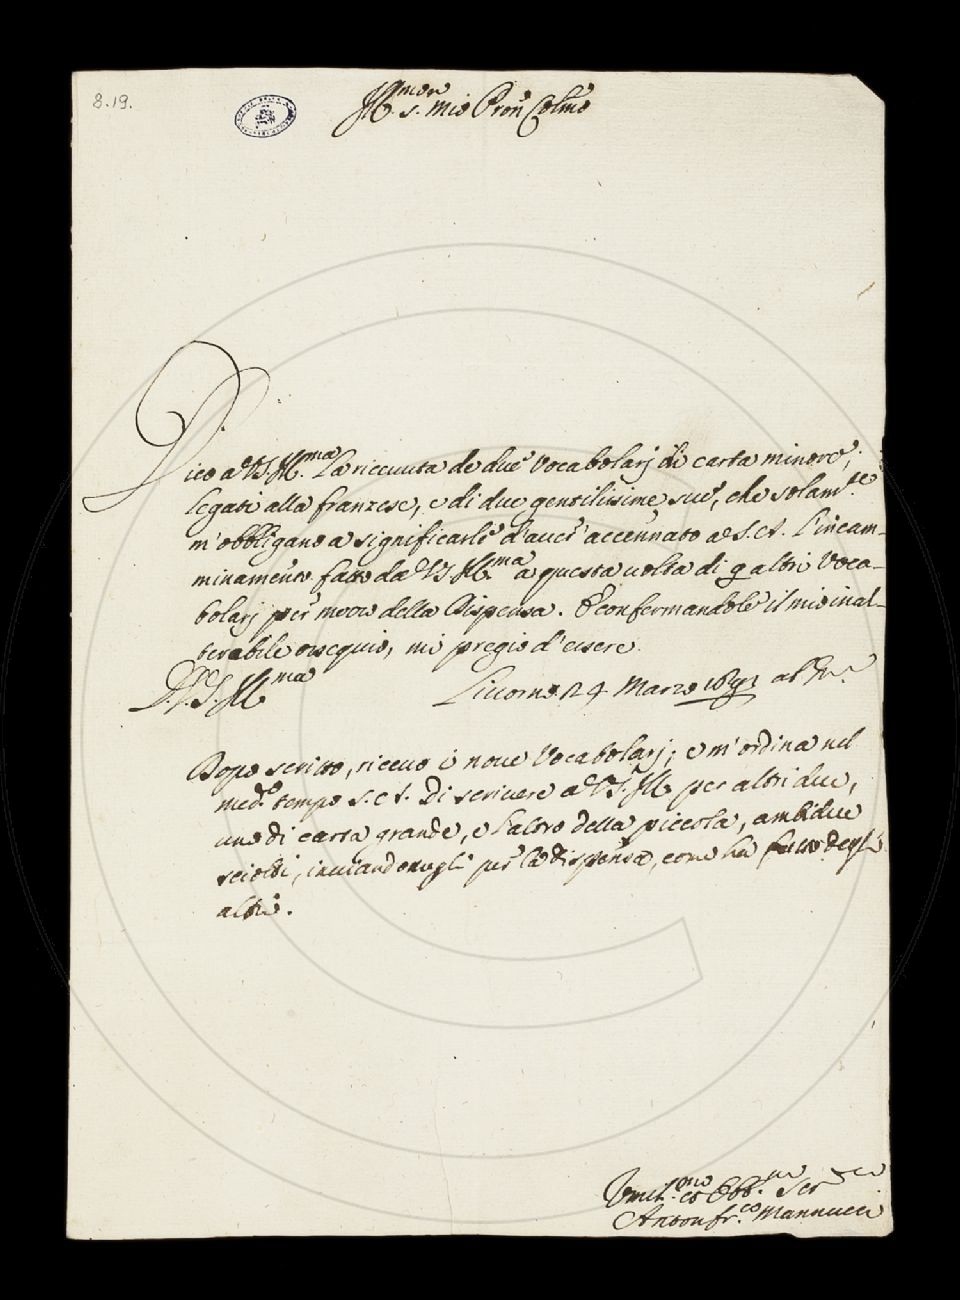 8.19.
Ill.mo s. mio Pron Colmo
Dico a V.S. Ill.ma la riceuuta de due Vocabolarj di carta minore,
legati alla franzese, e di due gentilissime sue, che solam.te
m'obbligano a significarle d'auer' accennato a S.A. l'incam-
minamento fatto da V.S. Ill.ma a questa uolta di 9 altri Voca-
bolarj per mezzo della Dispensa. E confermandole il mio inal-
terabile ossequio, mi pregio d'essere
D. V.S. Ill.ma Liuorno 24 Marzo 1691 ab Inc.ne
Dopo scritto, riceuo i noue Vocabolarj; e m'ordina nel
med.o tempo S.A. di scriuere a V.S. Ill. per altri due,
uno di carta grande, e l'altro della piccola, ambidue
sciolti, inuiandonegli per la dispensa, come ha fatto degl'
altri.
Vmil.mo et Obb.mo Ser.re
Antonfr.co Mannucci